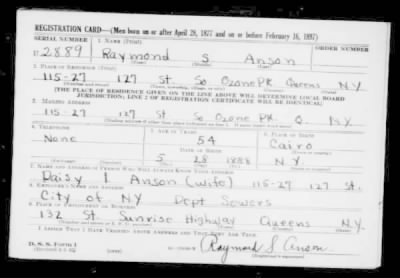 REGISTRATION CARD—(Men born on or after April 28, 1877 and on or before February 16, 1897)
SERIAL NUMBER 1. NAME (Print) ORDER NUMBER
U 2889 Raymond S Anson
2. PLACE OF RESIDENCE (Print)
115-27 127 St So Ozone Pk. Queens N.Y.
(Number and street) (Town, township, village, or city) (County) (State)
[THE PLACE OF RESIDENCE GIVEN ON THE LINE ABOVE WILL DETERMINE LOCAL BOARD
JURISDICTION; LINE 2 OF REGISTRATION CERTIFICATE WILL BE IDENTICAL]
3. MAILING ADDRESS
115-27 127 St. So Ozone Pk. Q. N.Y.
4. TELEPHONE 5. AGE IN YEARS 6. PLACE OF BIRTH
None 54 Cairo
DATE OF BIRTH
5 28 1888 N Y
7. NAME AND ADDRESS OF PERSON WHO WILL ALWAYS KNOW YOUR ADDRESS
Daisy I Anson (wife) 115-27 127 St.
8. EMPLOYER'S NAME AND ADDRESS
City of N.Y Dept Sewers
9. PLACE OF EMPLOYMENT OR BUSINESS
132 St. Sunrise Highway Queens N.Y.
I AFFIRM THAT I HAVE VERIFIED ABOVE ANSWERS AND THAT THEY ARE TRUE.
D. S. S. Form 1
Raymond S Anson